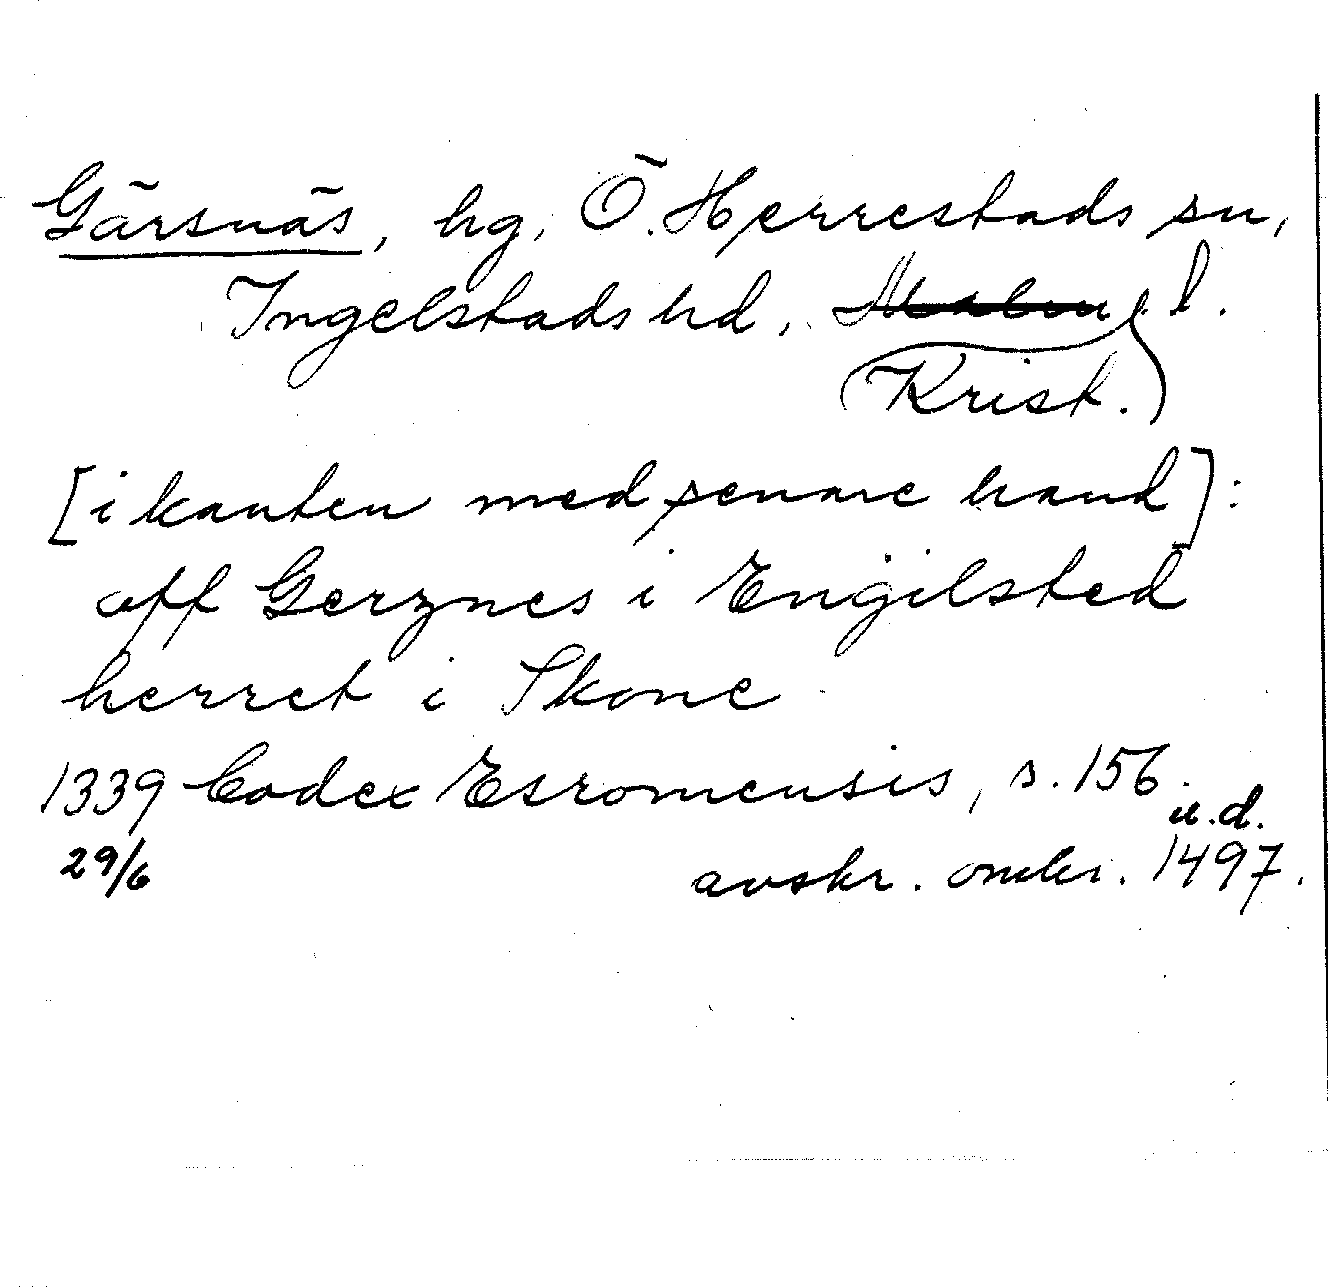 Gärsnäs, hg, Ö. Herrestads sn,
Ingelstads hd, Malm. l.
(Krist.)
[i kanten med senare hand]:
aff Gerznes i Engilsted
herret i Skone
1339 Codex Esromensis, s. 156.
u.d.
29/6 avskr. omkr. 1497.